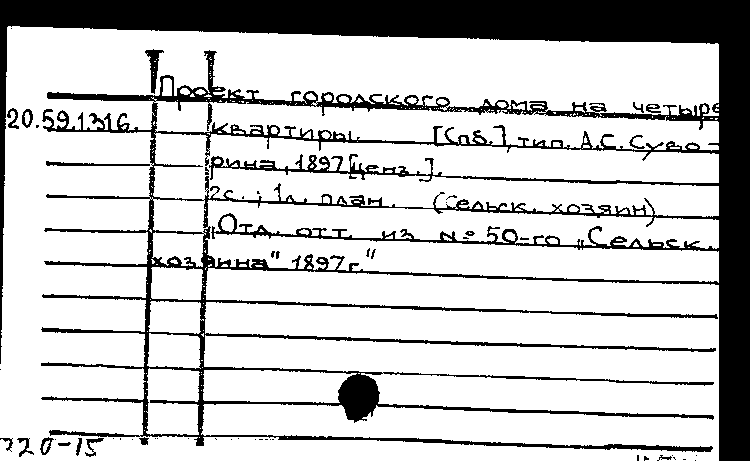 Проект городского дома на четыре
20.59.1316. квартиры. [Спб.], тип. А.С. Суво-
рина, 1897 [ценз.].
2с.; 1л. план. (Сельск. хозяин)
„Отд. отт. из №50-го „Сельск.
хозяина" 1897г."
220-15